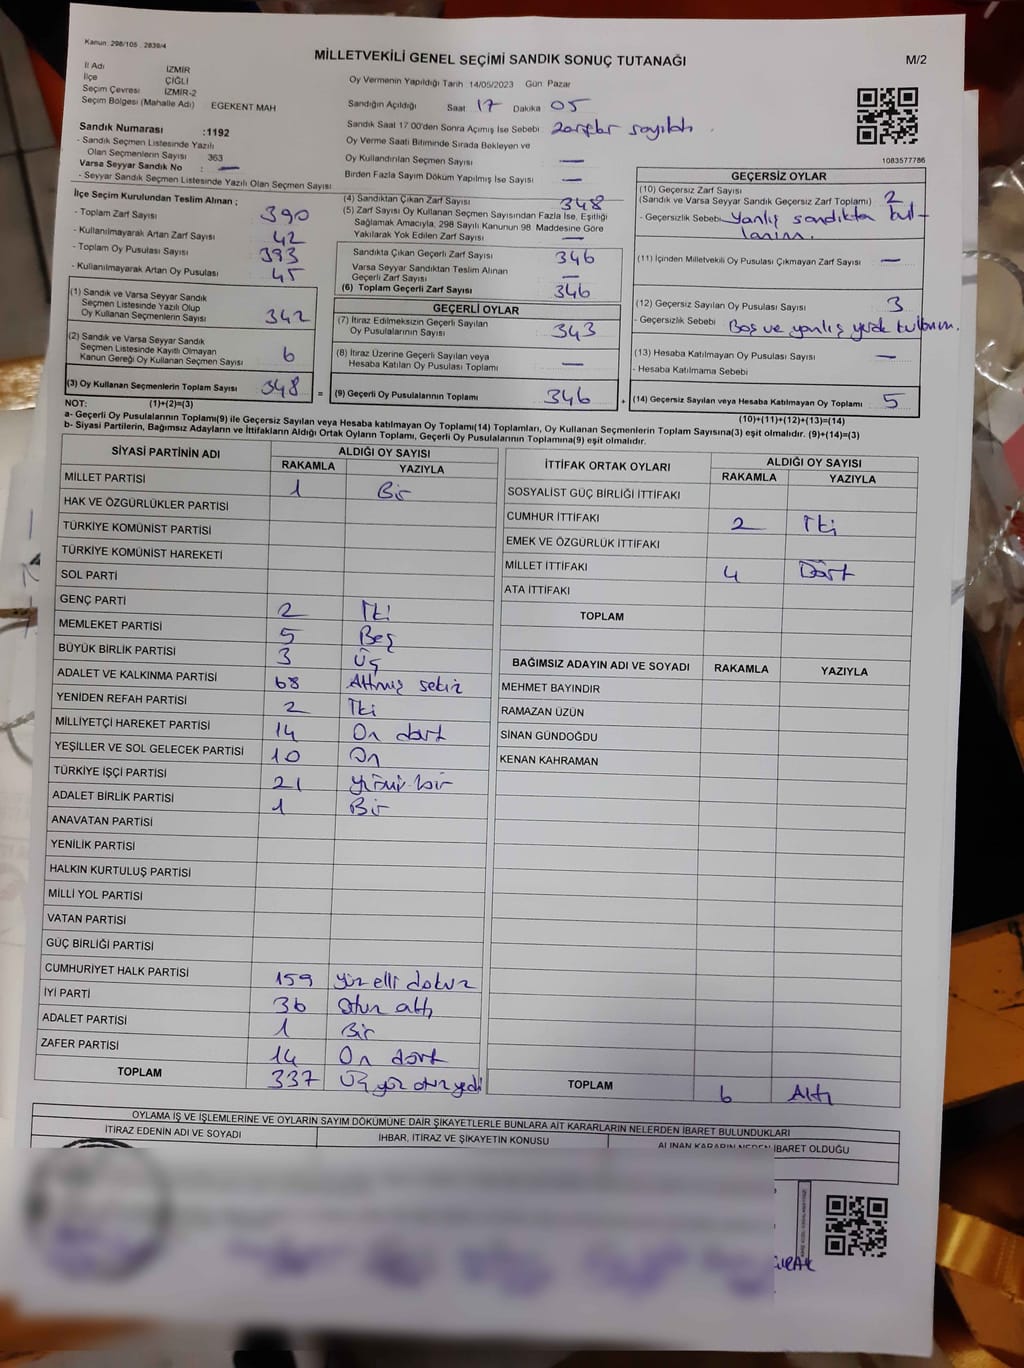 Kanun: 298/105 . 2839/4
MİLLETVEKİLİ GENEL SEÇİMİ SANDIK SONUÇ TUTANAĞI
M/2
İl Adı İZMİR
İlçe ÇİĞLİ
Seçim Çevresi İZMİR-2
Seçim Bölgesi (Mahalle Adı) EGEKENT MAH
Sandık Numarası :1192
- Sandık Seçmen Listesinde Yazılı
Olan Seçmenlerin Sayısı 363
Varsa Seyyar Sandık No : —
- Seyyar Sandık Seçmen Listesinde Yazılı Olan Seçmen Sayısı
Oy Vermenin Yapıldığı Tarih 14/05/2023 Gün Pazar
Sandığın Açıldığı Saat 17 Dakika 05
Sandık Saat 17:00'den Sonra Açımış İse Sebebi Zarflar sayıldı.
Oy Verme Saati Bitiminde Sırada Bekleyen ve
Oy Kullandırılan Seçmen Sayısı —
Birden Fazla Sayım Döküm Yapılmış İse Sayısı —
1083577786
İlçe Seçim Kurulundan Teslim Alınan ;
- Toplam Zarf Sayısı 390
- Kullanılmayarak Artan Zarf Sayısı 42
- Toplam Oy Pusulası Sayısı 393
- Kullanılmayarak Artan Oy Pusulası 45
(1) Sandık ve Varsa Seyyar Sandık
Seçmen Listesinde Yazılı Olup
Oy Kullanan Seçmenlerin Sayısı 342
(2) Sandık ve Varsa Seyyar Sandık
Seçmen Listesinde Kayıtlı Olmayan
Kanun Gereği Oy Kullanan Seçmen Sayısı 6
(3) Oy Kullanan Seçmenlerin Toplam Sayısı 348 =
(4) Sandıktan Çıkan Zarf Sayısı 348
(5) Zarf Sayısı Oy Kullanan Seçmen Sayısından Fazla İse, Eşitliği
Sağlamak Amacıyla, 298 Sayılı Kanunun 98 Maddesine Göre
Yakılarak Yok Edilen Zarf Sayısı —
Sandıkta Çıkan Geçerli Zarf Sayısı 346
Varsa Seyyar Sandıktan Teslim Alınan
Geçerli Zarf Sayısı —
(6) Toplam Geçerli Zarf Sayısı 346
GEÇERLİ OYLAR
(7) İtiraz Edilmeksizin Geçerli Sayılan
Oy Pusulalarının Sayısı 343
(8) İtiraz Üzerine Geçerli Sayılan veya
Hesaba Katılan Oy Pusulası Toplamı —
(9) Geçerli Oy Pusulalarının Toplamı 346 +
GEÇERSİZ OYLAR
(10) Geçersiz Zarf Sayısı
(Sandık ve Varsa Seyyar Sandık Geçersiz Zarf Toplamı) 2
- Geçersizlik Sebebi Yanlış sandıkta kul-
lanım.
(11) İçinden Milletvekili Oy Pusulası Çıkmayan Zarf Sayısı —
(12) Geçersiz Sayılan Oy Pusulası Sayısı 3
- Geçersizlik Sebebi Boş ve yanlış yerde kullanım.
(13) Hesaba Katılmayan Oy Pusulası Sayısı —
- Hesaba Katılmama Sebebi
(14) Geçersiz Sayılan veya Hesaba Katılmayan Oy Toplamı 5
NOT: (1)+(2)=(3)
(10)+(11)+(12)+(13)=(14)
a- Geçerli Oy Pusulalarının Toplamı(9) ile Geçersiz Sayılan veya Hesaba katılmayan Oy Toplamı(14) Toplamları, Oy Kullanan Seçmenlerin Toplam Sayısına(3) eşit olmalıdır. (9)+(14)=(3)
b- Siyasi Partilerin, Bağımsız Adayların ve İttifakların Aldığı Ortak Oyların Toplamı, Geçerli Oy Pusulalarının Toplamına(9) eşit olmalıdır.
SİYASİ PARTİNİN ADI ALDIĞI OY SAYISI
RAKAMLA YAZIYLA
MİLLET PARTİSİ 1 Bir
HAK VE ÖZGÜRLÜKLER PARTİSİ
TÜRKİYE KOMÜNİST PARTİSİ
TÜRKİYE KOMÜNİST HAREKETİ
SOL PARTİ
GENÇ PARTİ 2 İki
MEMLEKET PARTİSİ 5 Beş
BÜYÜK BİRLİK PARTİSİ 3 Üç
ADALET VE KALKINMA PARTİSİ 68 Altmış sekiz
YENİDEN REFAH PARTİSİ 2 İki
MİLLİYETÇİ HAREKET PARTİSİ 14 On dört
YEŞİLLER VE SOL GELECEK PARTİSİ 10 On
TÜRKİYE İŞÇİ PARTİSİ 21 yirmi bir
ADALET BİRLİK PARTİSİ 1 Bir
ANAVATAN PARTİSİ
YENİLİK PARTİSİ
HALKIN KURTULUŞ PARTİSİ
MİLLİ YOL PARTİSİ
VATAN PARTİSİ
GÜÇ BİRLİĞİ PARTİSİ
CUMHURİYET HALK PARTİSİ 159 yüz elli dokuz
İYİ PARTİ 36 otuz altı
ADALET PARTİSİ 1 Bir
ZAFER PARTİSİ 14 On dört
TOPLAM 337 Üç yüz otuz yedi
İTTİFAK ORTAK OYLARI ALDIĞI OY SAYISI
RAKAMLA YAZIYLA
SOSYALİST GÜÇ BİRLİĞİ İTTİFAKI
CUMHUR İTTİFAKI 2 İki
EMEK VE ÖZGÜRLÜK İTTİFAKI
MİLLET İTTİFAKI 4 Dört
ATA İTTİFAKI
TOPLAM
BAĞIMSIZ ADAYIN ADI VE SOYADI RAKAMLA YAZIYLA
MEHMET BAYINDIR
RAMAZAN ÜZÜN
SİNAN GÜNDOĞDU
KENAN KAHRAMAN
TOPLAM 6 Altı
OYLAMA İŞ VE İŞLEMLERİNE VE OYLARIN SAYIM DÖKÜMÜNE DAİR ŞİKAYETLERLE BUNLARA AİT KARARLARIN NELERDEN İBARET BULUNDUKLARI
İTİRAZ EDENİN ADI VE SOYADI İHBAR, İTİRAZ VE ŞİKAYETİN KONUSU ALINAN KARARIN NEDEN İBARET OLDUĞU